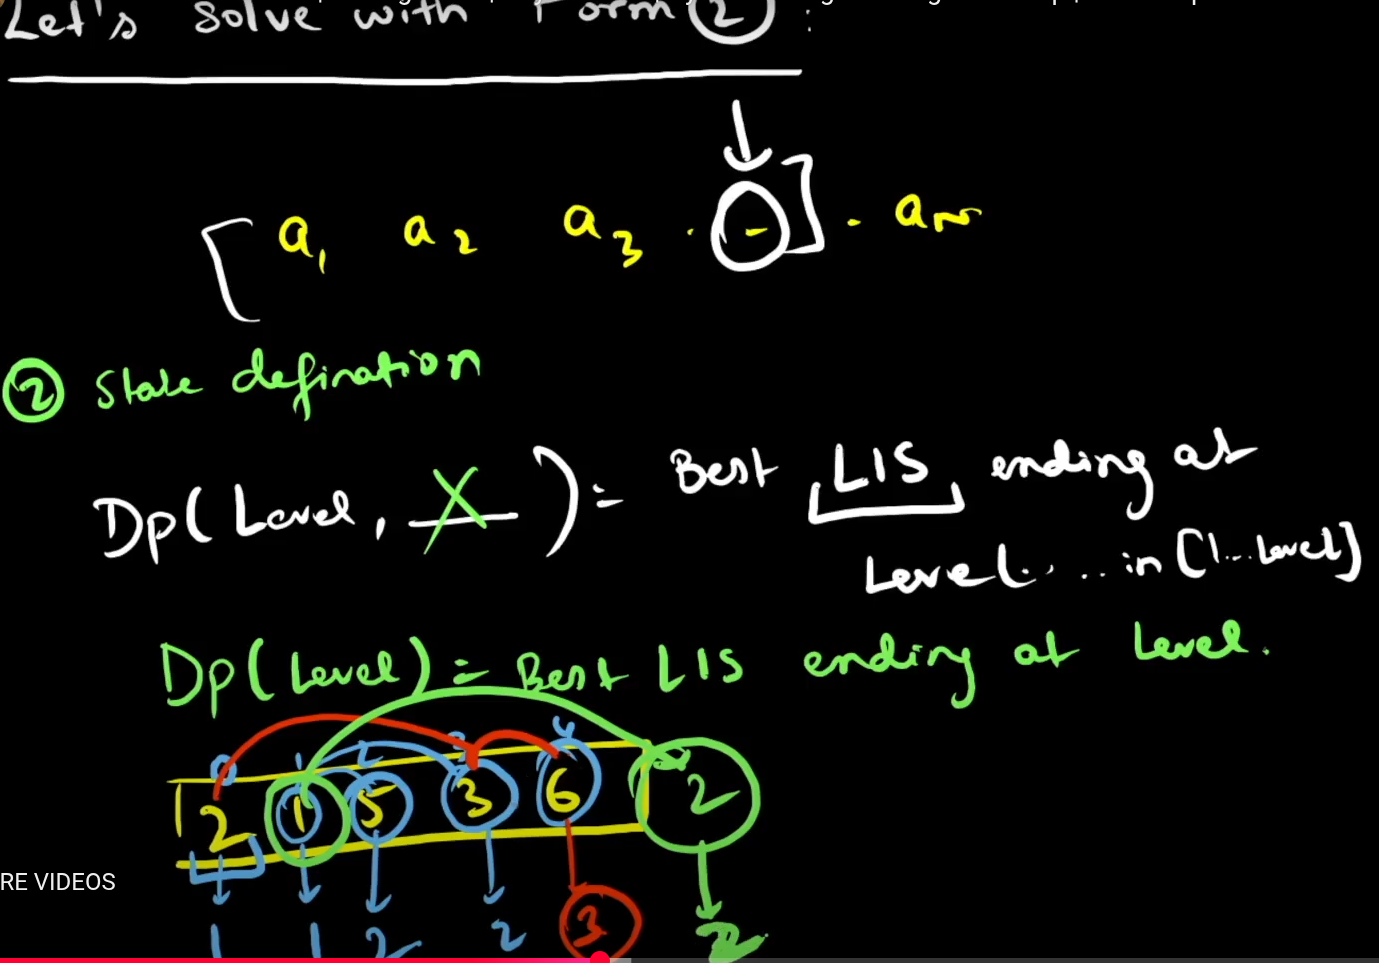 Let's solve with Form ②:
[ a₁ a₂ a₃ . - ] . aₙ
② State defination
Dp( Level, X ) = Best LIS ending at
Level... .. in [1...Level]
Dp(Level) = Best LIS ending at Level.
0 1 2 3 4
2 1 5 3 6 2
RE VIDEOS
1 1 2 2 3 2